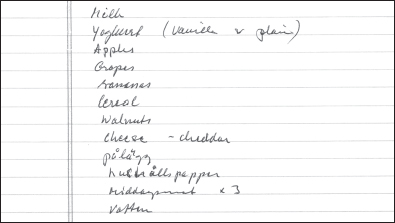 Milk
Yoghurt (vanilla & plain)
Apples
Grapes
Bananas
Cereal
Walnuts
Cheese - cheddar
pålägg
hushållspapper
Middagsmat x 3
Vatten